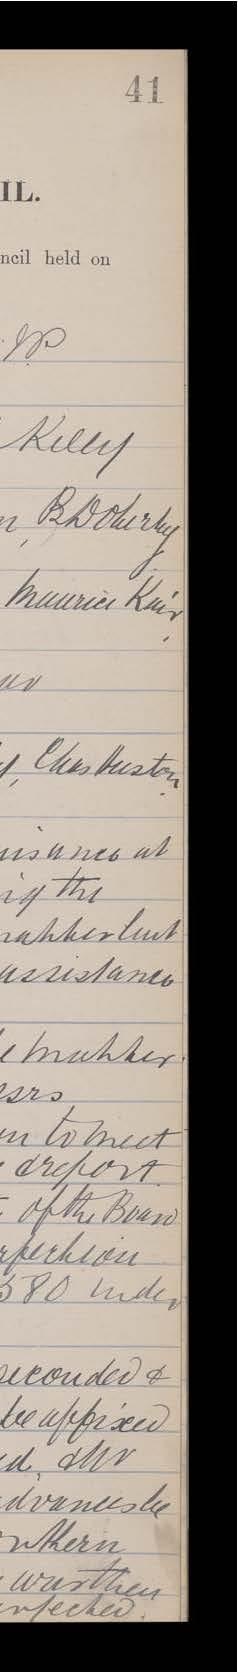 41
IL.
ncil held on
JP
Kelly
B Doherty
Maurice Kair,
y, Chas Huston,
uisance at
ing the
matter but
assistance
e matter.
ssrs
to meet
report
of the Board
rfection
580 under
seconded &
be affixed
d, & Mr
advances be
orthern
was then
erfected.